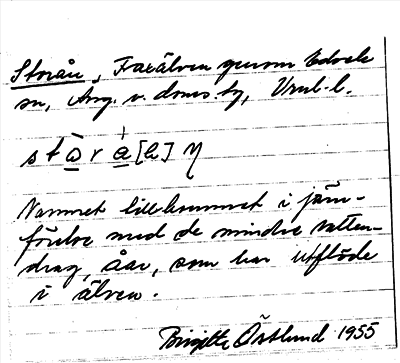 Storån, Faxälven genom Edsele
sn, Ång. v. doms. tg, Vrml. l.
s t ò̱ r a̱ [h] ŋ
Namnet tillkommet i jäm-
förelse med de mindre vatten-
drag, åar, som har utflöde
i älven.
Birgitta Östlund 1955